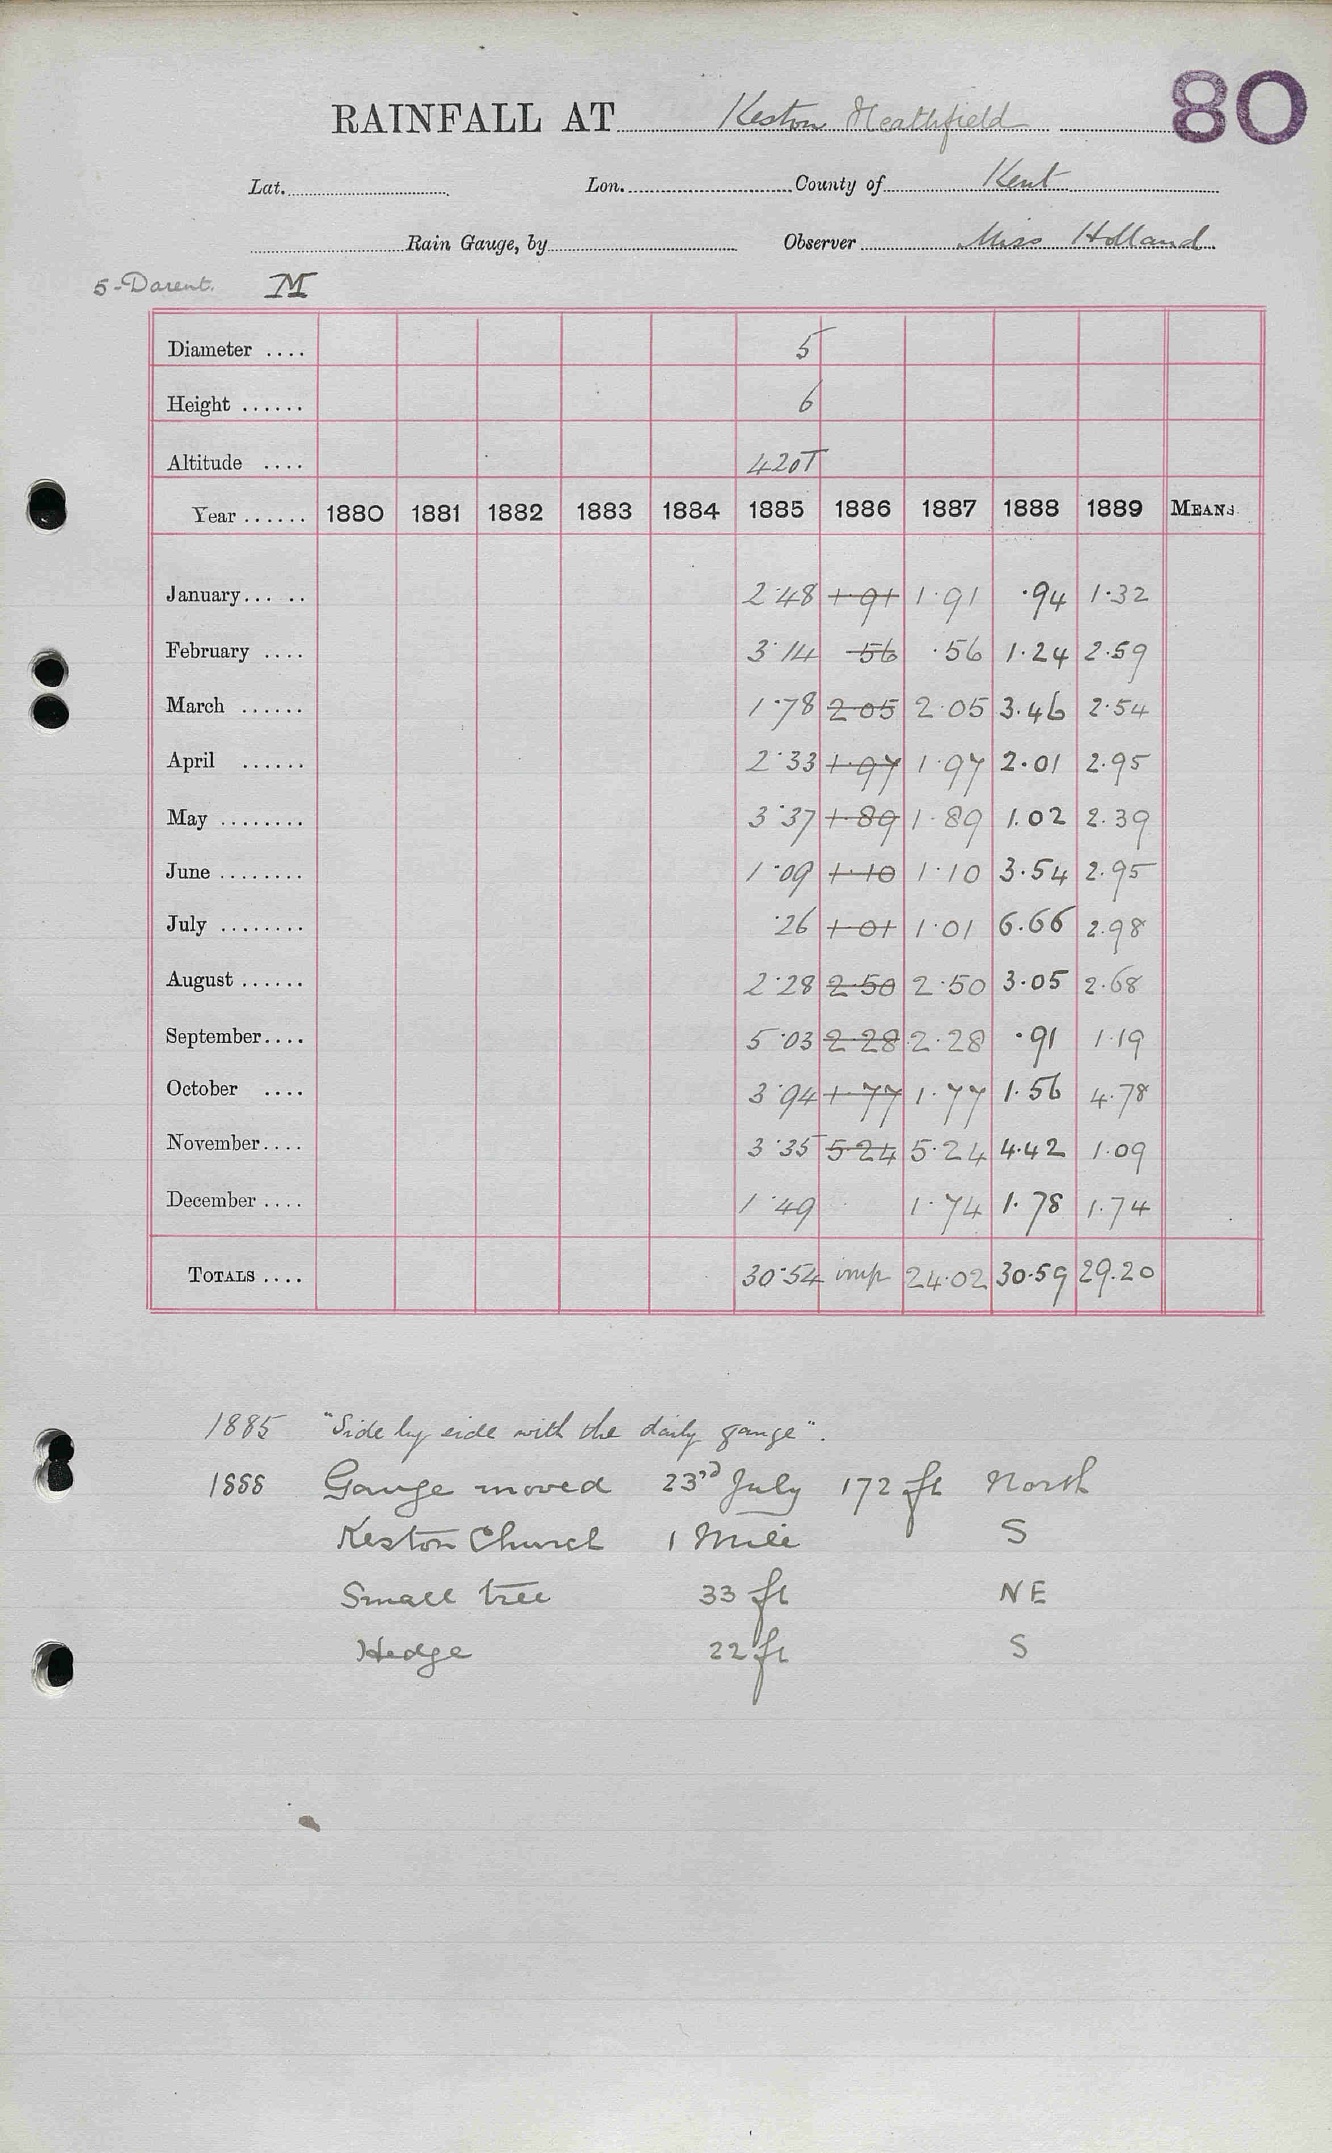 80
RAINFALL AT Keston Heathfield
Lat. Lon. County of Kent
Rain Gauge, by Observer Miss Holland
5-Darent. M
Diameter .... 5
Height ...... 6
Altitude .... 420T
Year ...... 1880 1881 1882 1883 1884 1885 1886 1887 1888 1889 MEANS
January... .. 2.48 1.91 1.91 .94 1.32
February .... 3.14 56 .56 1.24 2.59
March ...... 1.78 2.05 2.05 3.46 2.54
April ...... 2.33 1.97 1.97 2.01 2.95
May ........ 3.37 1.89 1.89 1.02 2.39
June ........ 1.09 1.10 1.10 3.54 2.95
July ........ .26 1.01 1.01 6.66 2.98
August ...... 2.28 2.50 2.50 3.05 2.68
September.... 5.03 2.28 2.28 .91 1.19
October .... 3.94 1.77 1.77 1.56 4.78
November.... 3.35 5.24 5.24 4.42 1.09
December .... 1.49 1.74 1.78 1.74
TOTALS .... 30.54 imp 24.02 30.59 29.20
1885 "Side by side with the daily gauge".
1888 Gauge moved 23rd July 172 ft North
Keston Church 1 Mile S
Small tree 33 ft NE
Hedge 22 ft S